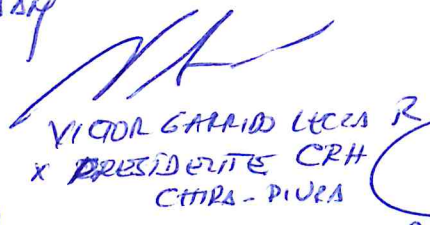 VICTOR GARRIDO LECCA R
X PRESIDENTE CRH
CHIRA - PIURA